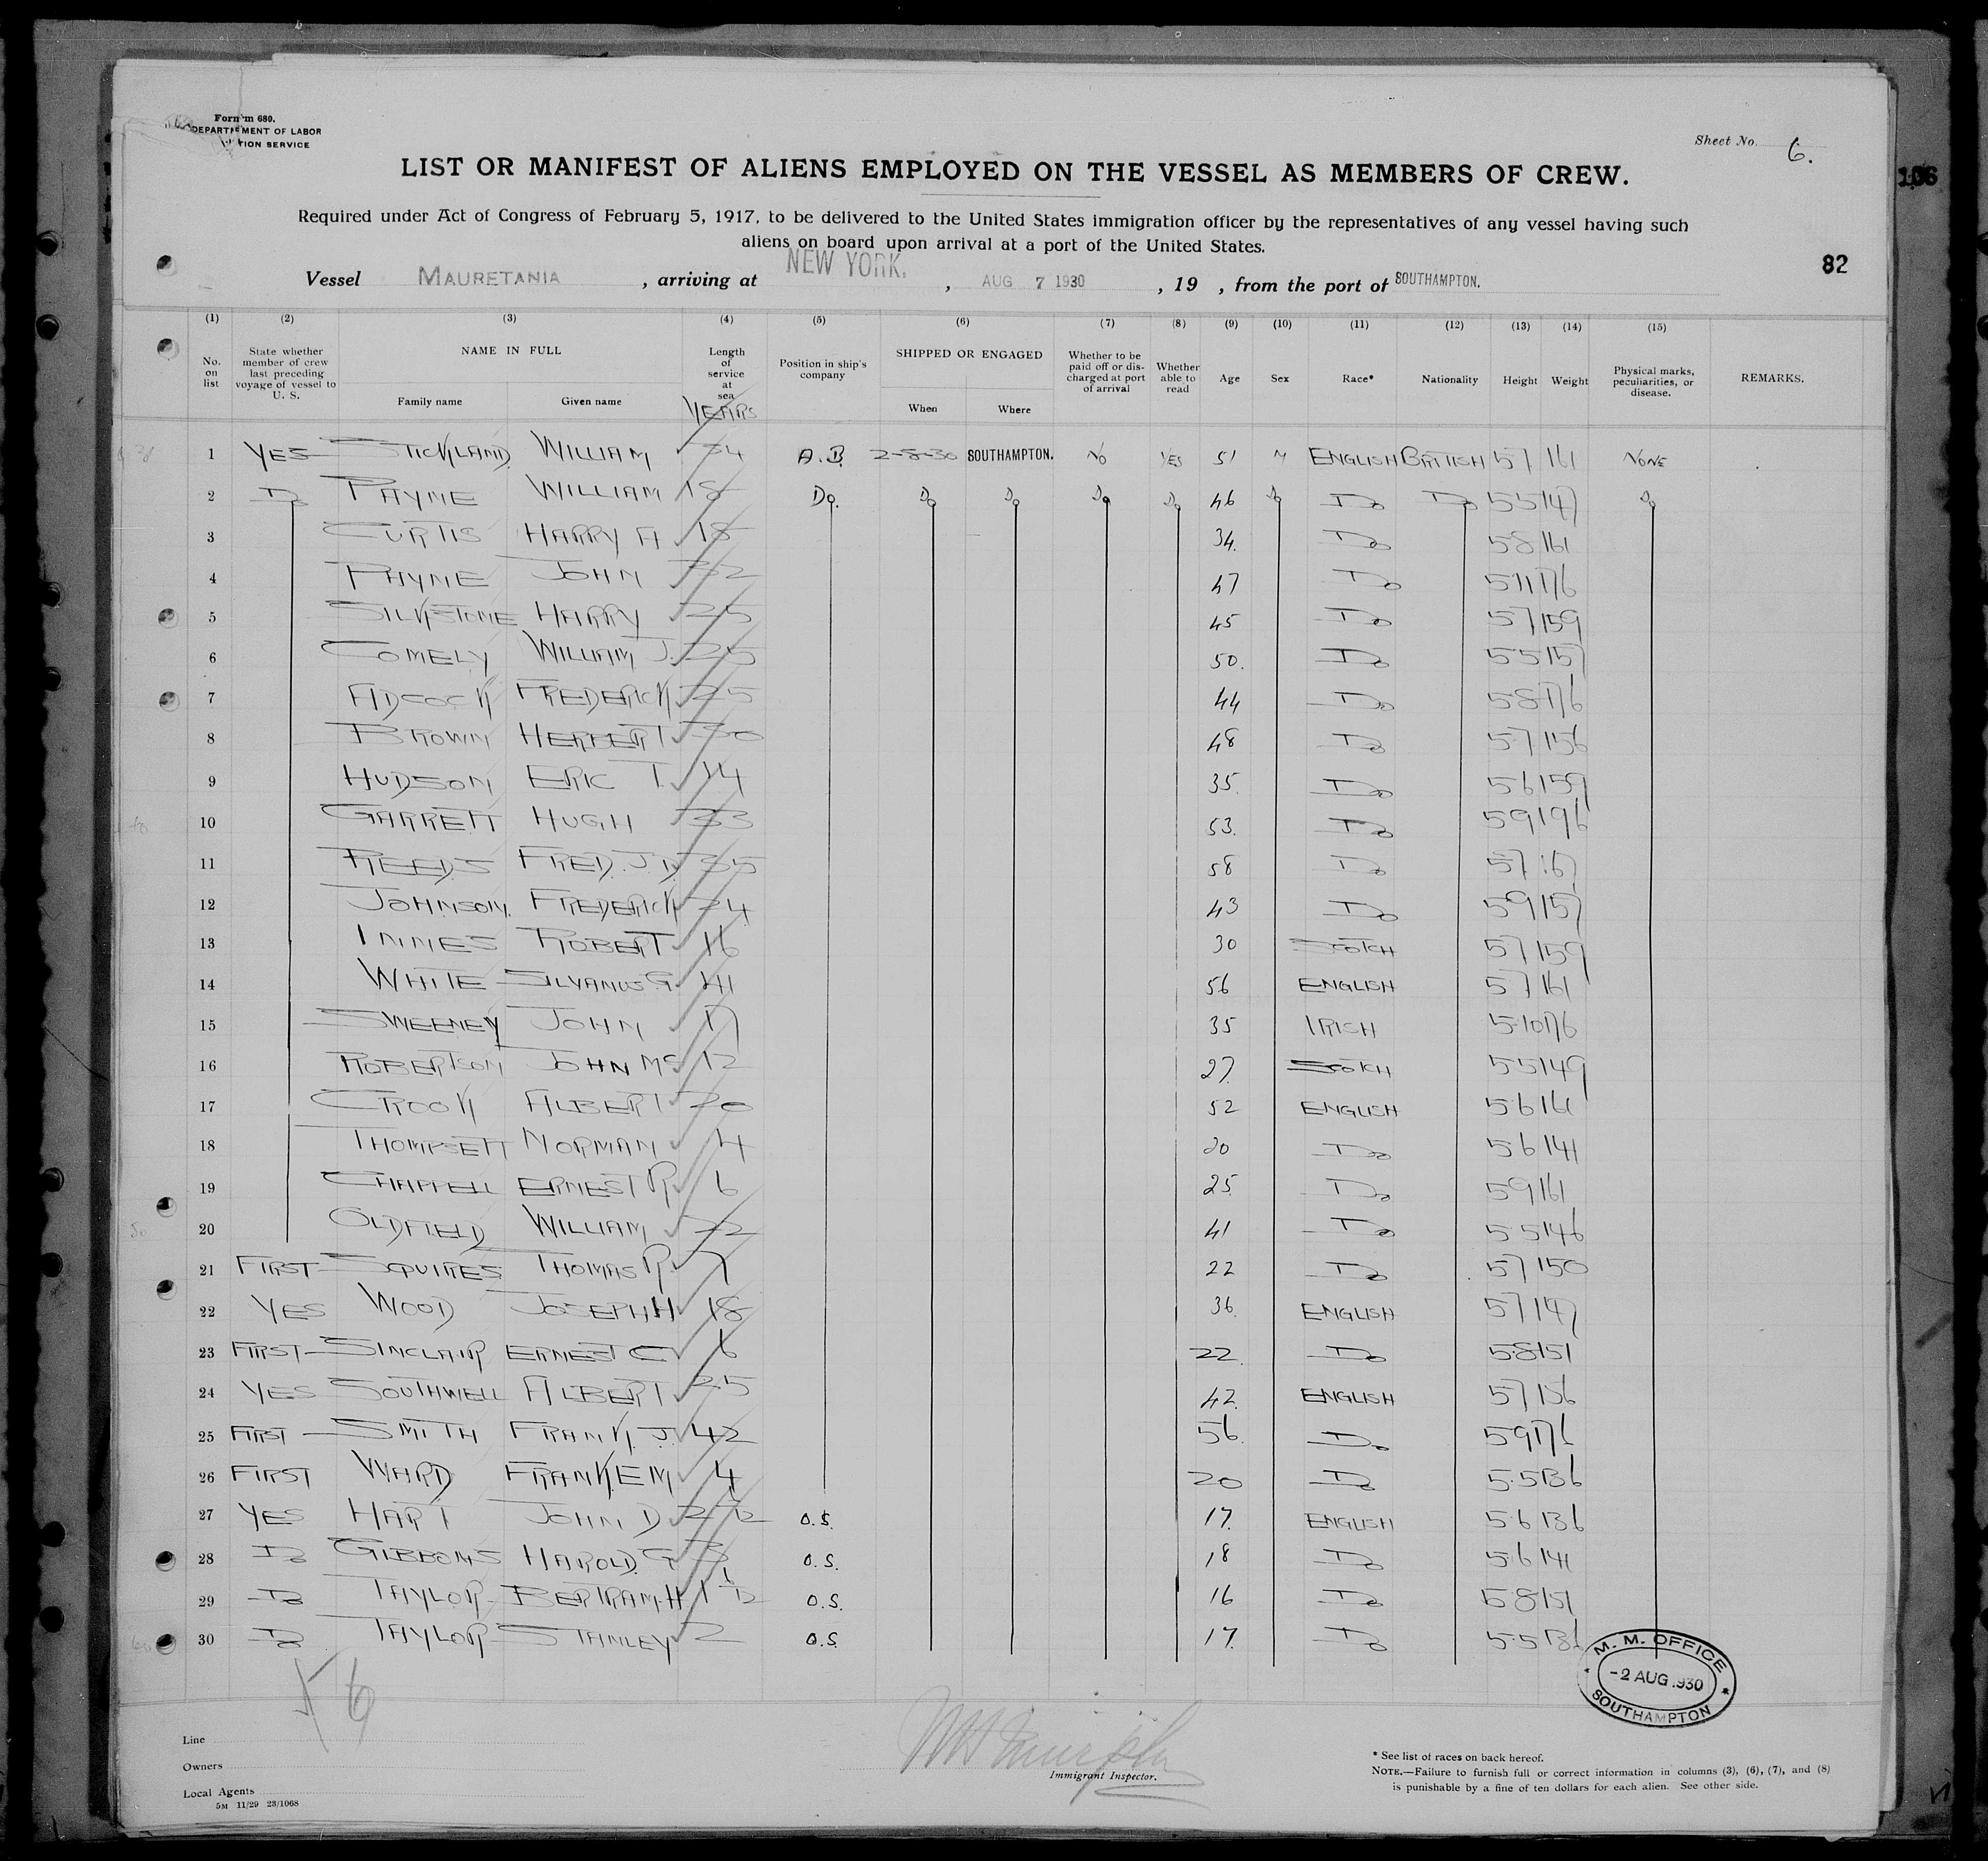 Form 680.
DEPARTMENT OF LABOR
TION SERVICE
Sheet No. 6.
LIST OR MANIFEST OF ALIENS EMPLOYED ON THE VESSEL AS MEMBERS OF CREW.
106
Required under Act of Congress of February 5, 1917, to be delivered to the United States immigration officer by the representatives of any vessel having such
aliens on board upon arrival at a port of the United States.
82
Vessel MAURETANIA , arriving at NEW YORK. , AUG 7 1930 , 19 , from the port of SOUTHAMPTON.
(1) (2) (3) (4) (5) (6) (7) (8) (9) (10) (11) (12) (13) (14) (15)
No. on list State whether member of crew last preceding voyage of vessel to U. S. NAME IN FULL Family name Given name Length of service at sea YEARS Position in ship's company SHIPPED OR ENGAGED When Where Whether to be paid off or discharged at port of arrival Whether able to read Age Sex Race* Nationality Height Weight Physical marks, peculiarities, or disease. REMARKS.
1 YES STICKLAND WILLIAM 34 A.B. 2-8-30 SOUTHAMPTON. NO YES 51 M ENGLISH BRITISH 5 7 161 NONE
2 Do PAYNE WILLIAM 18 Do. Do Do Do Do 46 Do Do Do 5 5 147 Do
3 CURTIS HARRY A 18 34. Do 5 8 161
4 PAYNE JOHN 32 47 Do 5 11 176
5 SILVESTONE HARRY 25 45 Do 5 7 159
6 COMELY WILLIAM J. 25 50. Do 5 5 157
7 ADCOCK FREDERICK 25 44 Do 5 8 176
8 BROWN HERBERT 30 48 Do 5 7 156
9 HUDSON ERIC T. 14 35. Do 5 6 159
10 GARRETT HUGH 33 53. Do 5 9 196
11 REEDS FRED. J. D 35 58 Do 5 7 167
12 JOHNSON. FREDERICK 24 43 Do 5 9 157
13 INNES ROBERT 16 30 SCOTCH 5 7 159
14 WHITE SILVANUS G. 41 56 ENGLISH 5 7 161
15 SWEENEY JOHN 17 35 IRISH 5 10 176
16 ROBERTSON JOHN MC 12 27. SCOTCH 5 5 149
17 CROOK ALBERT 20 52 ENGLISH 5 6 161
18 THOMPSETT NORMAN 4 20 Do 5 6 141
19 CHAFFELL ERNEST R. 6 25 Do 5 9 161
20 OLDFIELD WILLIAM 22 41 Do 5 5 146
21 FIRST SQUIRES THOMAS R. 7 22 Do 5 7 150
22 YES WOOD JOSEPH H 18 36 ENGLISH 5 7 147
23 FIRST SINCLAIR ERNEST C 6 22. Do 5 8 151
24 YES SOUTHWELL ALBERT 25 42. ENGLISH 5 7 156
25 FIRST SMITH FRANK. J. 42 56. Do 5 9 176
26 FIRST WARD FRANK E M 4 20 Do 5 5 136
27 YES HART JOHN D O.S. 17. ENGLISH 5 6 136
28 Do GIBBONS HAROLD. G 3 O.S. 18 Do 5 6 141
29 Do TAYLOR BERTRAM. H O.S. 16 Do 5 8 151
30 Do TAYLOR STANLEY 2 O.S. 17. Do 5 5 136
M. M. OFFICE
-2 AUG 1930
SOUTHAMPTON
Line
Owners
Local Agents
5M 11/29 23/1068
Immigrant Inspector.
* See list of races on back hereof.
NOTE.—Failure to furnish full or correct information in columns (3), (6), (7), and (8)
is punishable by a fine of ten dollars for each alien. See other side.